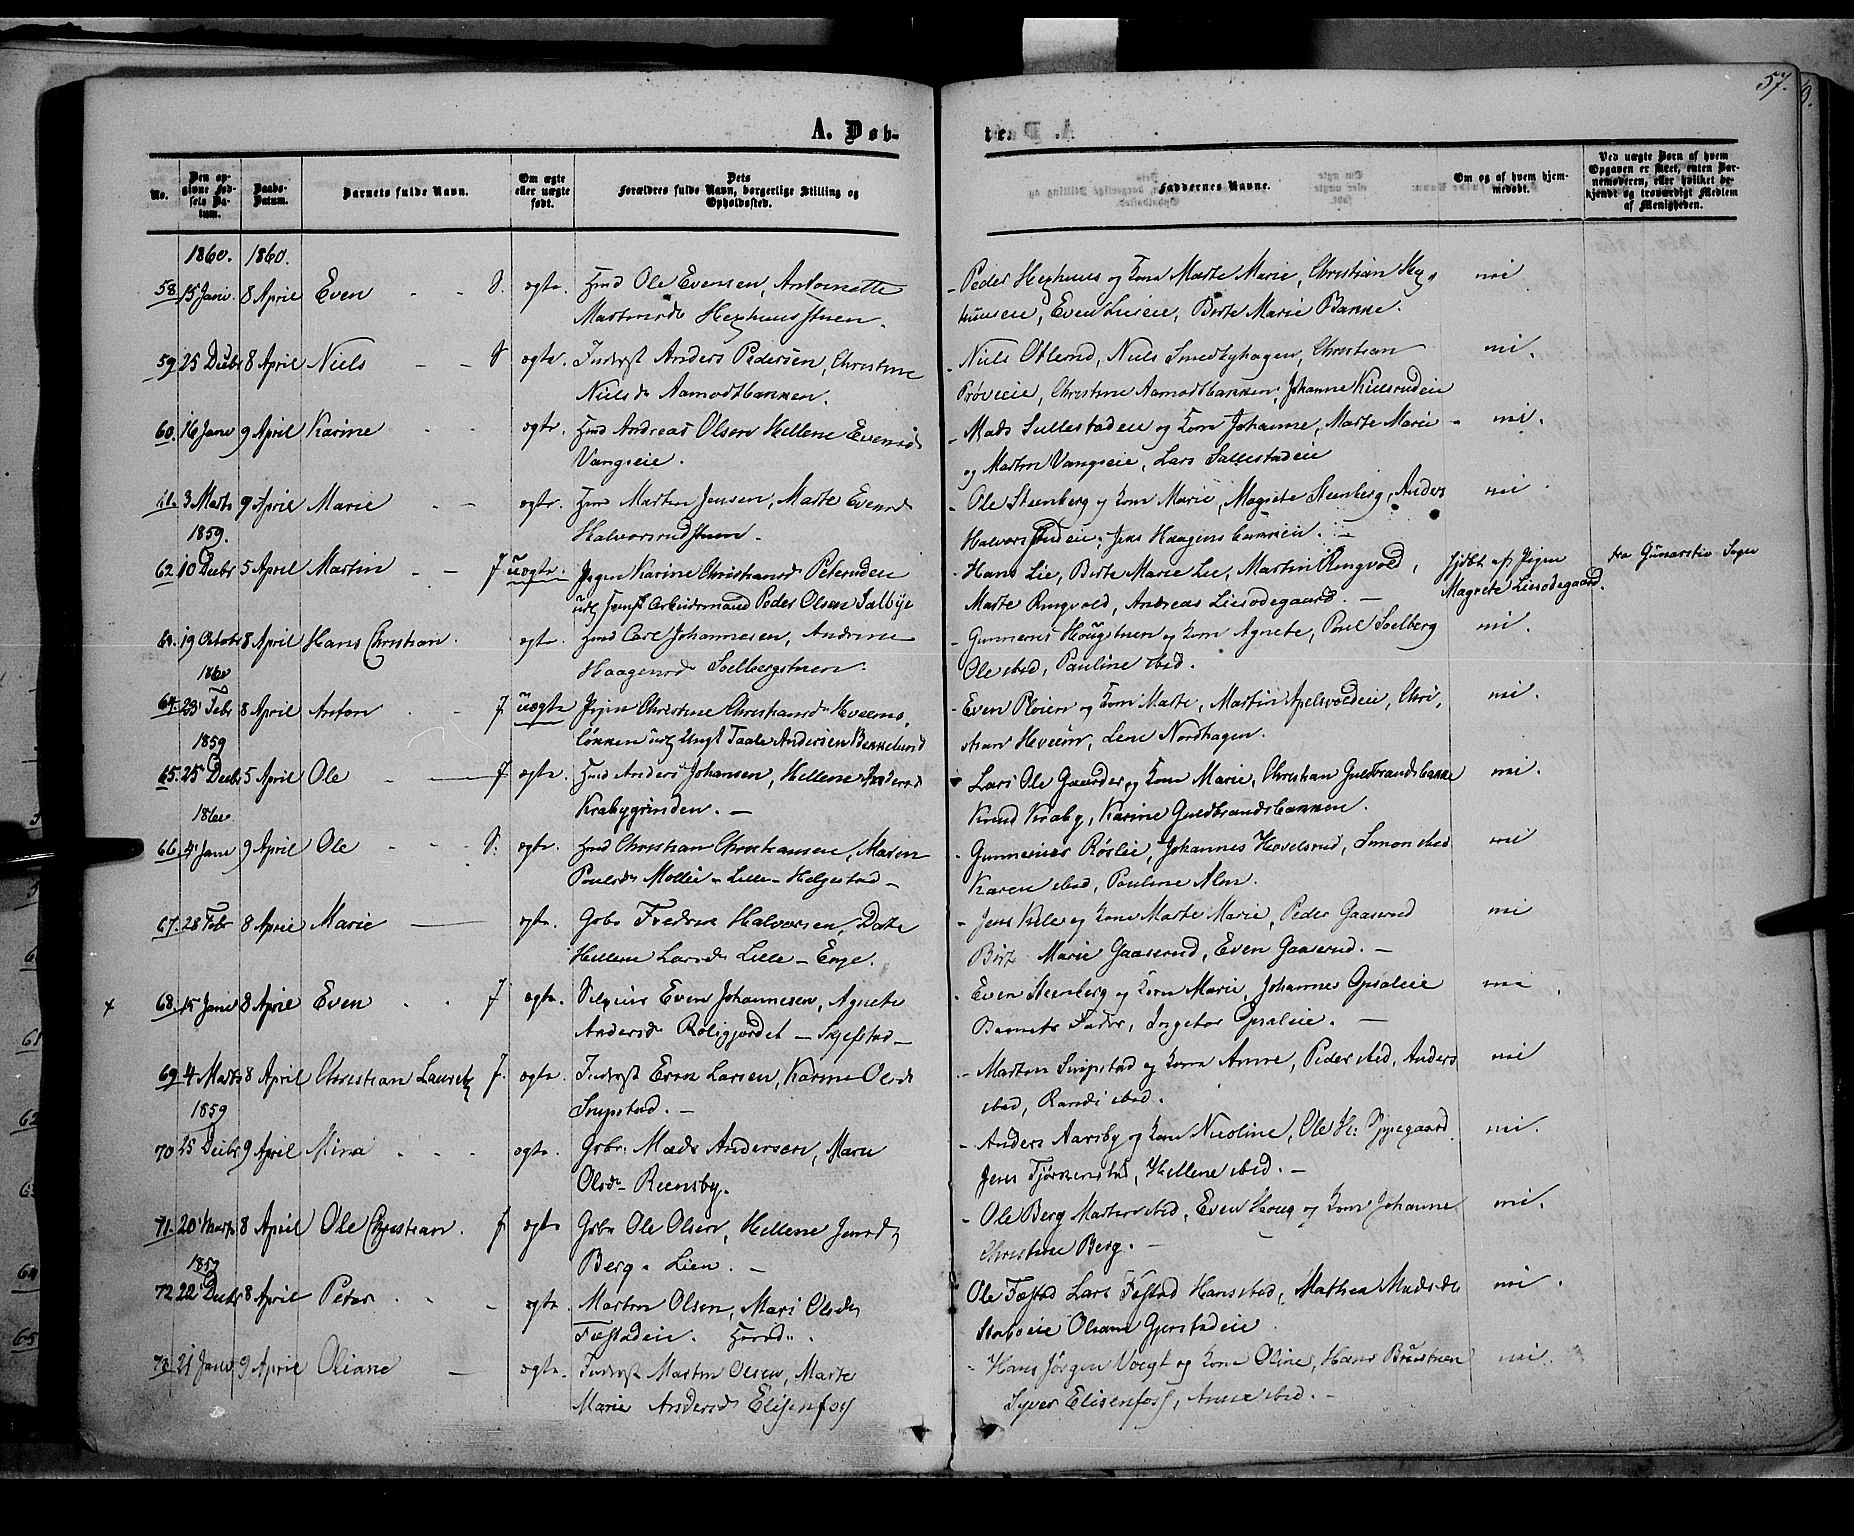 57.
A. Døb-
te.
No.
Den opgivne Fødsels Datum.
Daabs-Datum.
Barnets fulde Navn.
Om ægte eller uægte født.
Dets Forældres fulde Navn, borgerlige Stilling og Opholdssted.
Faddernes Navne.
Om og af hvem hjemmedøbt.
Ved uægte Børn af hvem Opgaven er skeet, enten Barnemoderen, eller hvilket bekjendt og troværdigt Medlem af Menigheden.
1860. 1860.
58. 15 Janv. 8 April Even S. ægte. Hmd Ole Evensen, Antonette
Martinisd. Hexhuusstuen.
Peder Hexhuus og Kone Marte Marie, Christian Hex- nei
huuseie, Even Lieeie, Berte Marie Bakke.
59 25 Decbr 8 April Niels S ægte. Inderst Anders Pedersen, Christine
Nielsd. Aamodtbakken.
Niels Oblerud, Niels Smedbyhagen, Christian nei.
Prøveeie, Christine Aamodtbakken, Johanne Kielsrudeie
60. 16 Janv 9 April Karine ægte. Hmd Andreas Olsen Hellene Evensd.
Vangseie.
Mads Sullestadeie og Kone Johanne, Marte Marie nei.
og Martin Vangseie, Lars Sullestadeie
61. 3 Marts 9 April Marie ægte. Hmd Martin Jensen, Marte Evensd
Halvorsrudstuen.
Ole Steenberg og Kone Marie, Magrete Steenberg, Anders nei.
Halvorsrudeie, Jens Haagensbakkeie.
1859.
62. 10 Decbr 5 April Martin f uægte. Pigen Karine Christiansd Petersudeie
udl. Fattig Arbeidsmand Peder Olsen Salbye
Hans Lie, Berte Marie Lie, Martin Ringvold, hjdbt af Pigen fra Gunarstie Sogn
Marte Ringvold, Andreas Liesødegaard Magrete Liesødegaard.
63. 19 Octobr 8 April Hans Christian. ægte. Hmd Carl Johannesen, Andrine
Haagensd Soelbergstuen.
Gunnerius Hougstuen og Kone Agnete, Poul Soelberg nei.
Ole ibid, Pauline ibid.
1860
64. 23 Febr 8 April Anton f uægte Pigen Christine Christiansd. Hveems-
løkken udl. Ungk. Taale Andersen Bekkelund
Even Røise og Kone Marte, Martin Apelsvoldeie, Chri- nei.
stian Hveem, Lene Nordhagen.
1859
65. 25 Decbr 5 April Ole f ægte. Hmd Anders Johansen, Hellene Andersd
Krabygrinden.
Lars Ole Gaarder og Kone Marie, Christian Guldbrandsbakke nei.
Knud Kraby, Karine Guldbrandsbakken.
1860.
66. 4 Janv 9 April Ole S. ægte. Hmd Christian Christiansen, Maren
Poulsd. Mølleie - Lille - Helgestad
Gunnerius Røsleie, Johannes Hovelsrud, Simon ibid nei
Karen ibid, Pauline Alm.
67. 28 Febr 8 April Marie ægte. Gbr. Fredrik Halvorsen, Dorte
Hellene Larsd. Lille - Enge.
Jens Kile og Kone Marte Marie, Peder Gaaserud nei
Birt Marie Gaaserud, Even Gaaserud.
68. 15 Janv 8 April Even f ægte. Selveier Even Johannesen, Agnete
Andersd. Roligjordet - Skjefstad
Even Steenberg og Kone Marie, Johanne Opsaleie nei
Barnets Fader, Ingebor Opsaleie.
69. 4 Marts 8 April Christian Lauritz f. ægte. Inderst Even Larsen, Karine Olsd.
Snipstad.
Martin Snipstad og Kone Anne, Peder ibid, Anders nei
ibid, Randi ibid.
1859
70 25 Decbr 9 April Mina ægte. Gbr. Mads Andersen, Mari
Olsd. Reensby.
Anders Aarsby og Kone Nicoline, Ole H: Prægaard nei.
Jens Tjørnenstad, Hellene ibid.
71. 20 Marts 8 April Ole Christian. f ægte Gbr. Ole Olsen, Hellene Jensd
Berg - Lien.
Ole Berg Martin ibid, Even Houg og Kone Johanne nei.
Christine Berg.
1859
72. 22 Decbr 8 April Peter ægte. Martin Olsen, Mari Olsd
Fæstadeie.
Ole Fæstad Lars Fæstad Hans ibid, Mathea Madsd. nei.
Staboeie Oliane Gjerstadeie
73. 21 Janv 9 April Oliane ægte. Inderst Martin Olsen, Marte
Marie Andersd Elisenfos
Hans Jørgen Voigt og Kone Oline, Hans Brustuen nei.
Syver Elisenfos, Anne ibid.